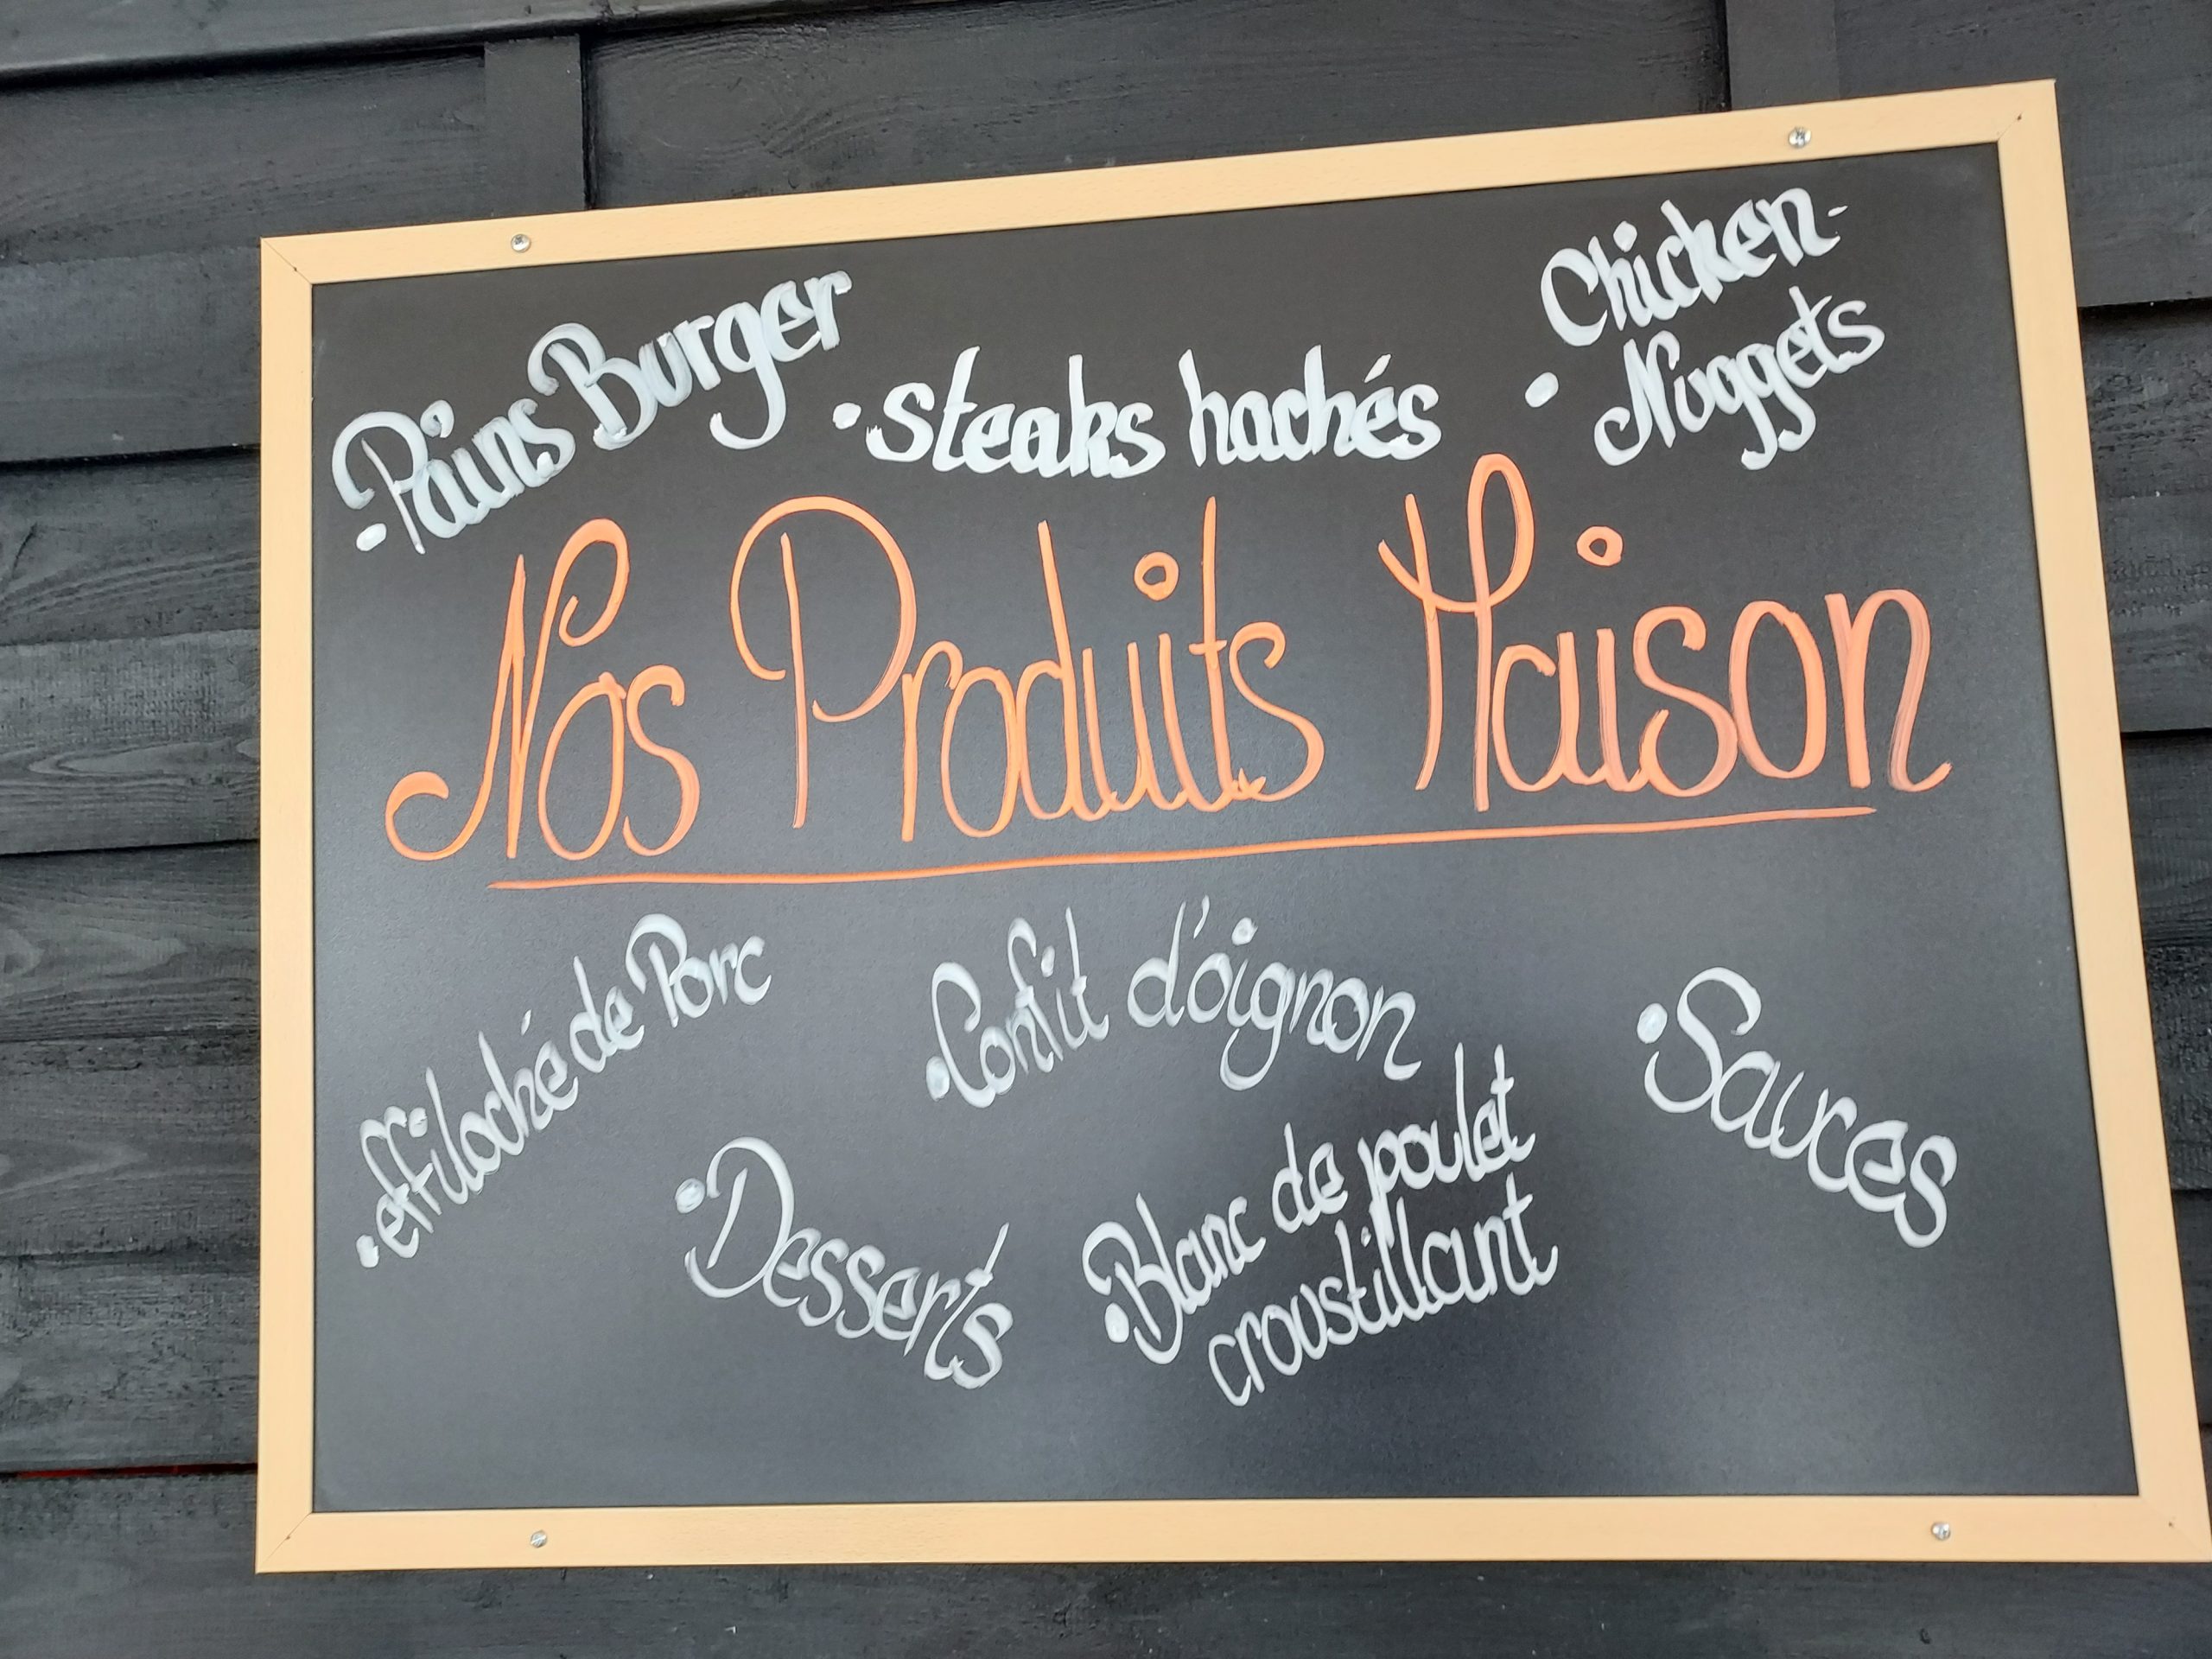 • Pains Burger
• Steaks hachés
• Chicken-
Nuggets
Nos Produits Maison
• effiloché de Porc
• Confit d'oignon
• Sauces
• Desserts
• Blanc de poulet
croustillant